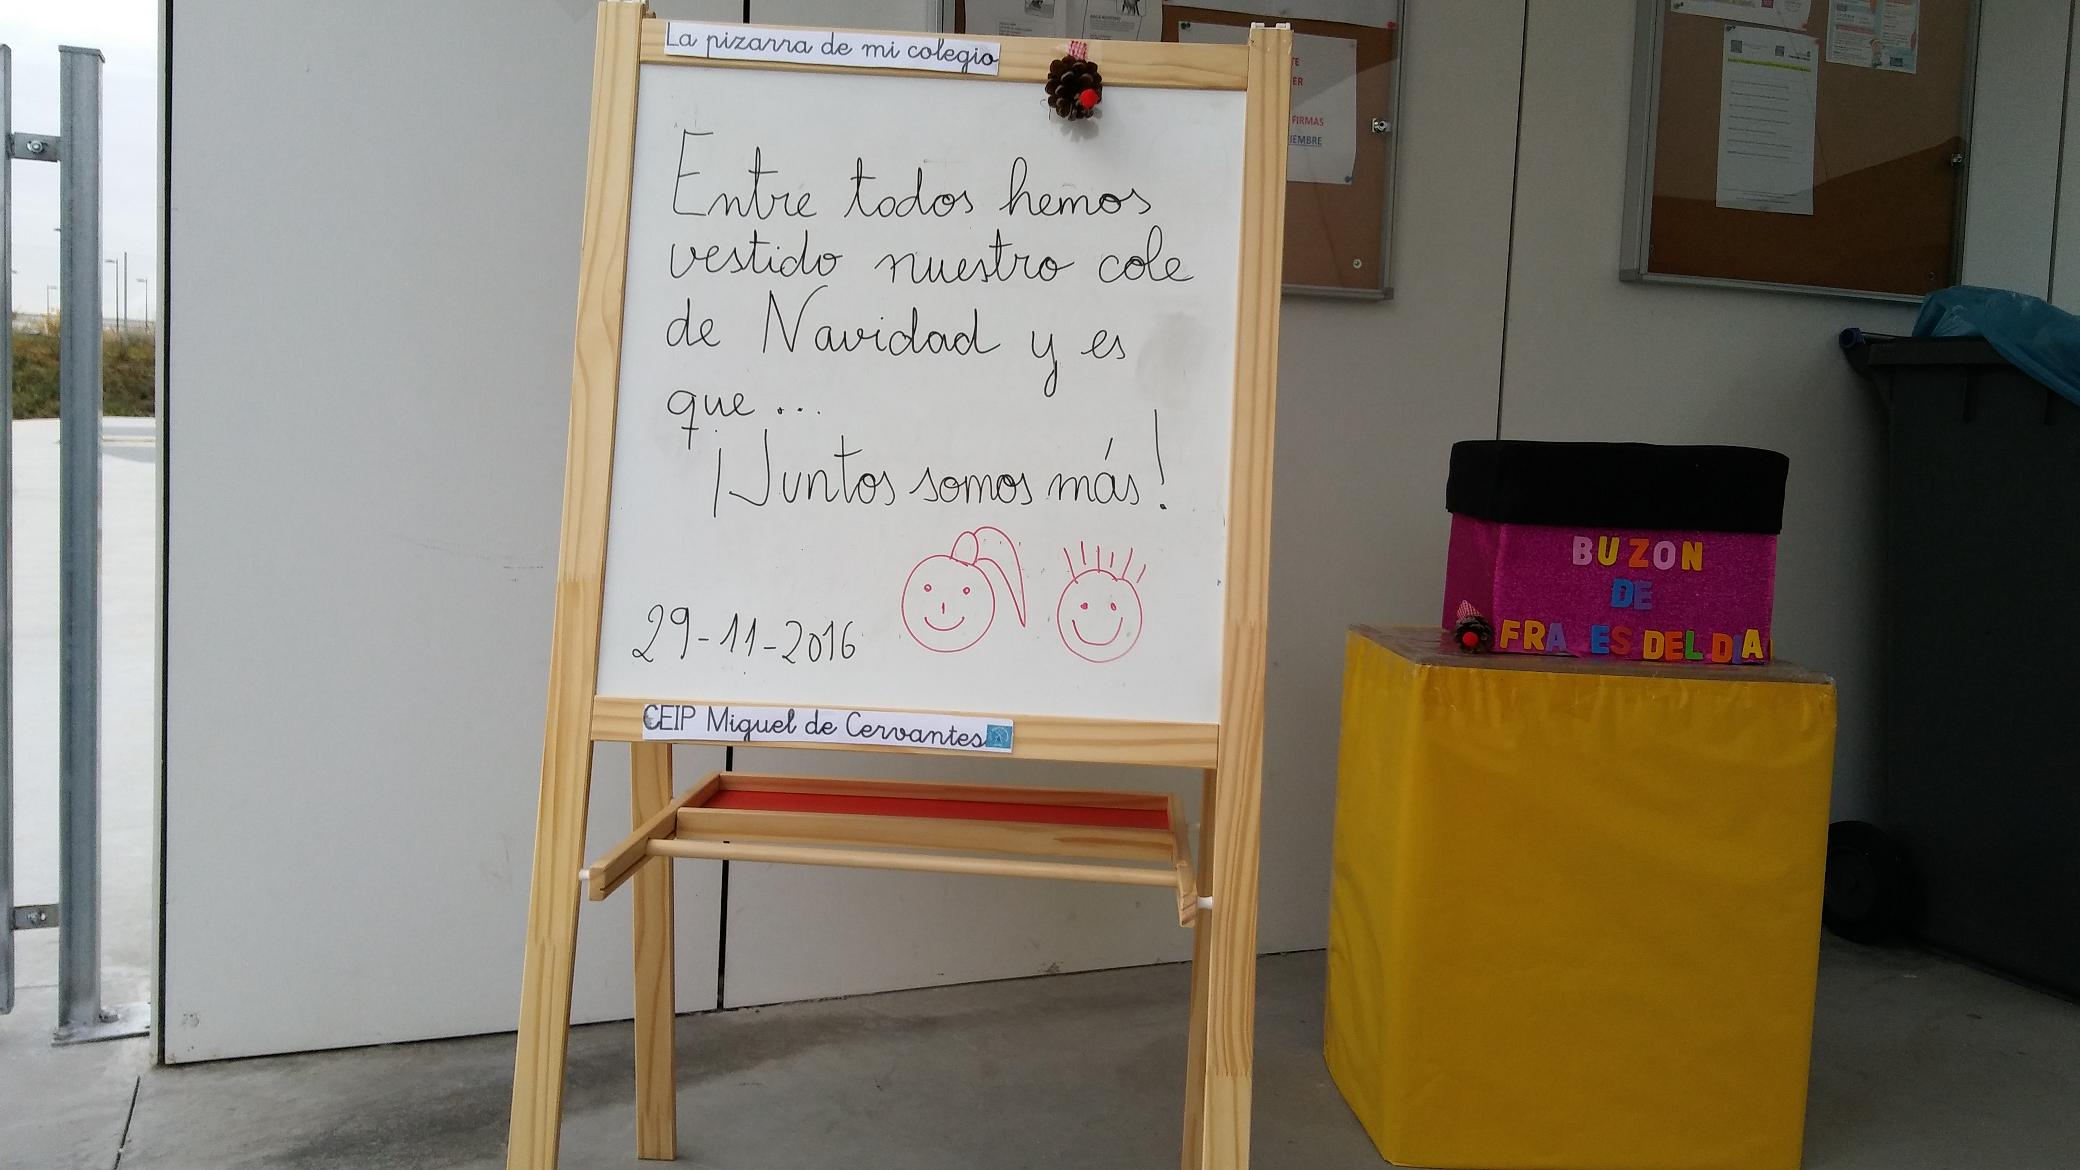 La pizarra de mi colegio
Entre todos hemos
vestido nuestro cole
de Navidad y es
que...
¡Juntos somos más!
29-11-2016
CEIP Miguel de Cervantes
FIRMAS
BUZON
DE
FRA ES DEL DIA